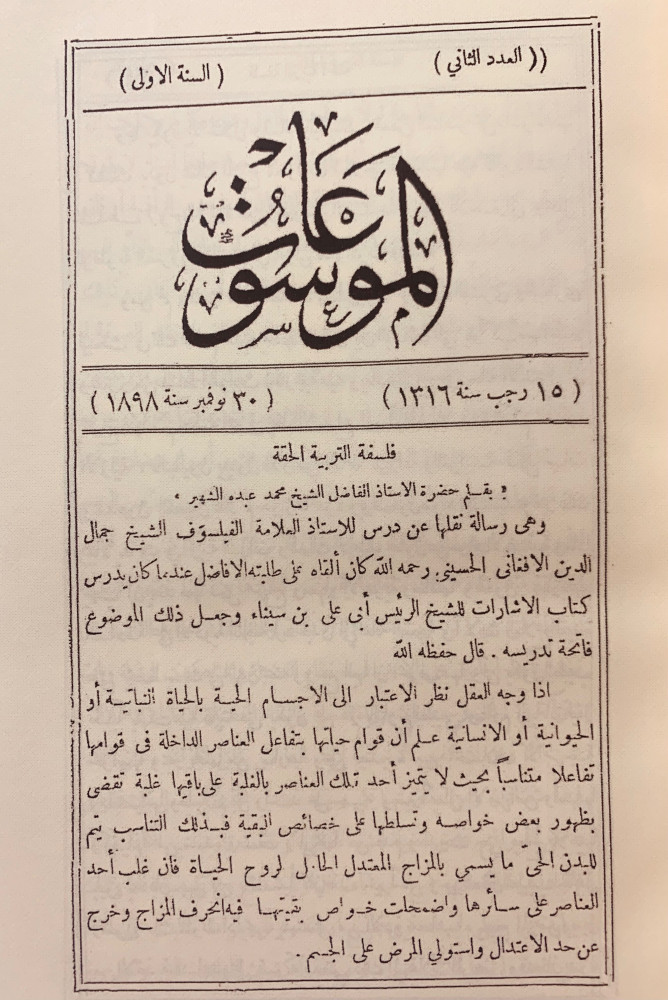 (( العدد الثاني )
( السنة الاولى )
الموسوعات
( ١٥ رجب سنة ١٣١٦ )
( ٣٠ نوفمبر سنة ١٨٩٨ )
فلسفة التربية الحقة
« بقلم حضرة الاستاذ الفاضل الشيخ محمد عبده الشهير »
وهى رسالة نقلها عن درس للاستاذ العلامة الفيلسوف الشيخ جمال
الدين الافغانى الحسينى رحمه الله كان ألقاه على طلبته الافاضل عندما كان يدرس
كتاب الاشارات للشيخ الرئيس أبى على بن سيناء وجعل ذلك الموضوع
فاتحة تدريسه . قال حفظه الله
اذا وجه العقل نظر الاعتبار الى الاجسام الحية بالحياة النباتية أو
الحيوانية أو الانسانية علم أن قوام حياتها بتفاعل العناصر الداخلة فى قوامها
تفاعلا متناسباً بحيث لا يتميز أحد تلك العناصر بالغلبة على باقيها غلبة تقضى
بظهور بعض خواصه وتسلطها على خصائص البقية فبذلك التناسب يتم
للبدن الحىّ ما يسمي بالمزاج المعتدل الحامل لروح الحياة فان غلب أحد
العناصر على سائرها واضمحلت خواص بقيتها فيه انحرف المزاج وخرج
عن حد الاعتدال واستولي المرض على الجسم .